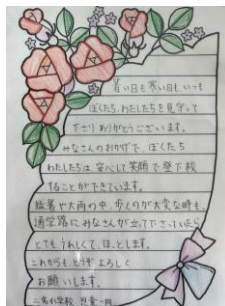 暑い日も寒い日もいつも
ぼくたち、わたしたちを見守って
下さりありがとうございます。
みなさんのおかげで、ぼくたち
わたしたちは安心して笑顔で登下校
することができています。
猛暑や大雨の中、歩くのが大変な時も、
通学路にみなさんが立って下さっていたら
とてもうれしくて、ほっとします。
これからもどうぞよろしく
お願いします。
二名小学校 児童一同